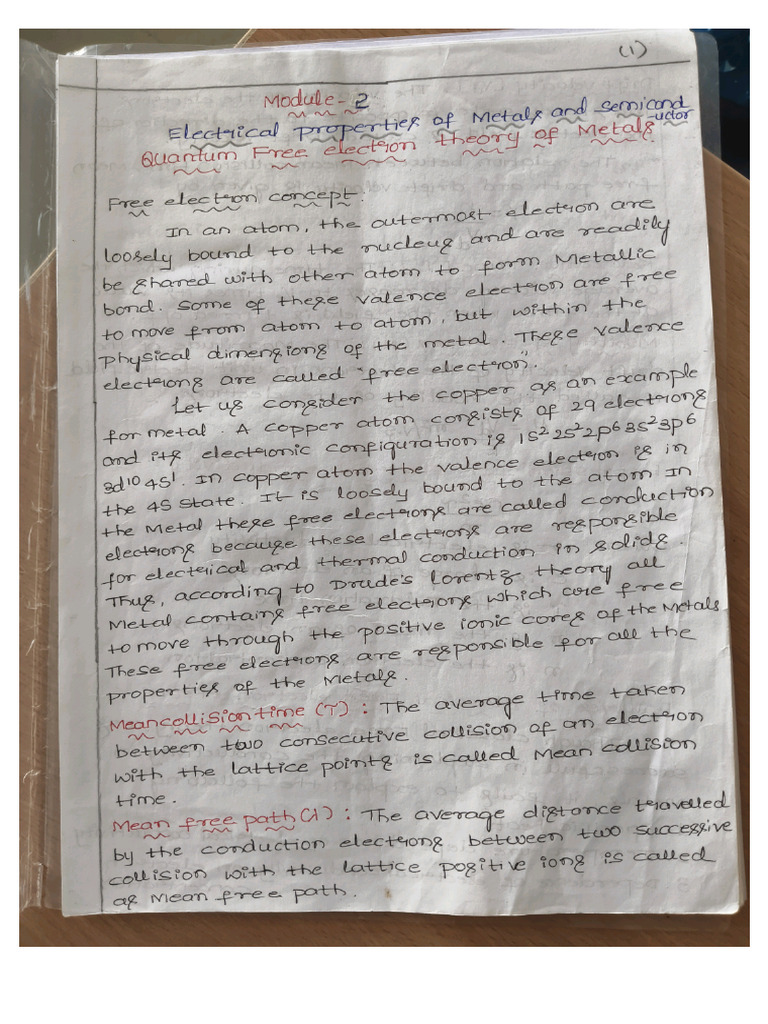 (1)
Module-2
Electrical properties of Metals and semicond
-uctor
Quantum Free election theory of Metals
Free election concept:
In an atom, the outermost election are
loosely bound to the nucleus and are readily
be shared with other atom to form Metallic
bond. Some of these valence election are free
to move from atom to atom, but within the
physical dimensions of the metal. These valence
elections are called "free election".
Let us consider the copper as an example
for metal. A copper atom consists of 29 elections
and its electronic configuration is 1s² 2s² 2p⁶ 3s² 3p⁶
3d¹⁰ 4s¹. In copper atom the valence election is in
the 4s state. It is loosely bound to the atom in
the Metal these free elections are called conduction
elections because these elections are responsible
for electrical and thermal conduction in solids.
Thus, according to Drude's Lorentz theory all
Metal contains free elections which are free
to move through the positive ionic cores of the Metals
These free elections are responsible for all the
properties of the Metals.
Mean collision time (τ) : The average time taken
between two consecutive collision of an election
with the lattice points is called Mean collision
time.
Mean free path (λ) : The average distance travelled
by the conduction elections between two successive
collision with the lattice positive ions is called
as Mean free path.